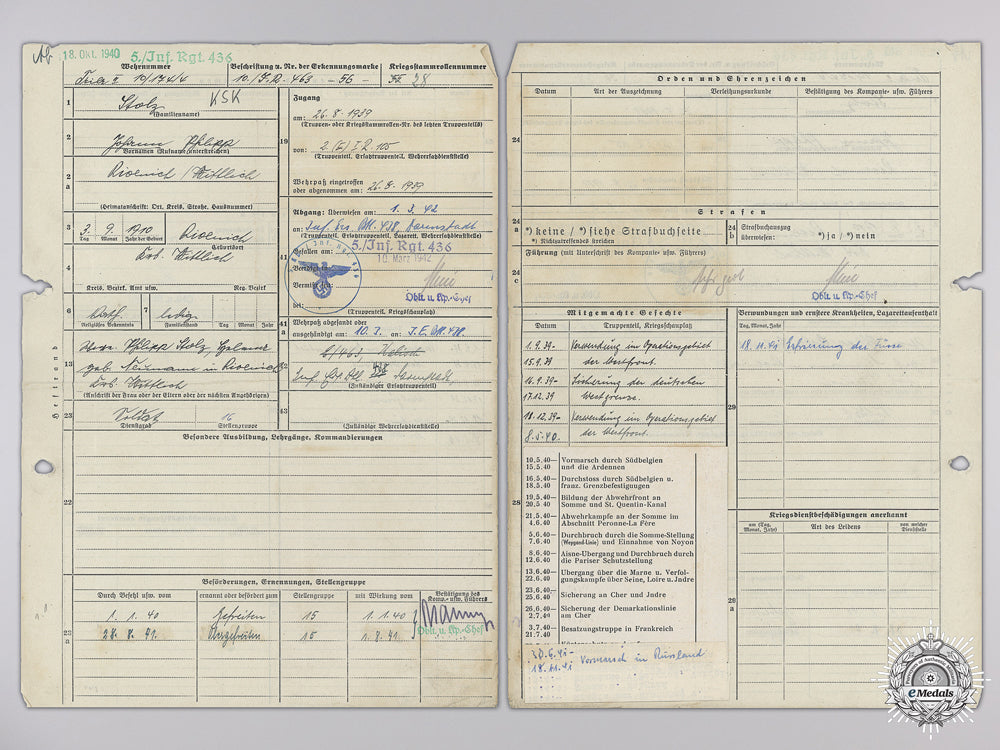 18. Okt. 1940 5./Inf. Rgt. 436
Wehrnummer
Beschriftung u. Nr. der Erkennungsmarke
Kriegsstammrollennummer
10. / I.R. - 463 - - 56 -
28
1
Stolz KSK
(Familienname)
2
Johann Philipp
Vornamen (Rufname unterstreichen)
2 a
/ Wittlich
(Heimatanschrift: Ort, Kreis, Straße, Hausnummer)
3
3. 9. 1910
Tag Monat Jahr der Geburt
Geburtsort
4
Wittlich
Kreis, Bezirk, Amt usw. Reg.-Bezirk
6
kath.
Religiöses Bekenntnis
7
ledig
Familienstand Tag Monat Jahr
13
Philipp Stolz,
geb. Neumann in
Wittlich
(Anschrift der Frau oder der Eltern oder der nächsten Angehörigen)
23
Soldat 16
Dienstgrad Stellengruppe
Heftrand
19
Zugang
am: 26.8.1939
(Truppen- oder Kriegsstammrollen-Nr. des letzten Truppenteils)
von: 2. (E) I.R. 105
(Truppenteil, Ersatztruppenteil, Wehrersatzdienststelle)
Wehrpaß eingetroffen
oder abgenommen am: 26.8.1939
41
Abgang: Überwiesen am: 1. 3. 42
an: Inf. Ers. Btl. 438, Darmstadt
(Truppenteil, Ersatztruppenteil, Lazarett, Wehrersatzdienststelle)
Gefallen am:
5./Inf. Rgt. 436
10. März 1942
Vermißt am:
Oblt. u. Kp.-Chef
bei:
(Truppenteil, Kriegsschauplatz)
41 a
Wehrpaß abgesandt oder
ausgehändigt am: 10. 3. an: I.E. Btl. 438.
6/463,
Inf. Ers. Btl. 438 Darmstadt,
(Zuständiger Ersatztruppenteil)
43
(Zuständige Wehrersatzdienststelle)
22
Besondere Ausbildung, Lehrgänge, Kommandierungen
23 a
Beförderungen, Ernennungen, Stellengruppe
Durch Befehl usw. vom
ernannt oder befördert zum
Stellengruppe
mit Wirkung vom
Bestätigung des Komp.- usw. Führers
1. 1. 40 Gefreiten 15 1. 1. 40
28. 8. 41. Obergefreiten 15 1. 8. 41.
Oblt. u. Kp.-Chef
24
Orden und Ehrenzeichen
Datum
Art der Auszeichnung
Verleihungsurkunde
Bestätigung des Kompanie- usw. Führers
Strafen
24 a
*) keine / *) siehe Strafbuchseite
*) Nichtzutreffendes streichen
24 b
Strafbuchauszug
überwiesen: *) ja / *) nein
24 c
Führung (mit Unterschrift des Kompanie- usw. Führers)
Sehr gut
Oblt. u. Kp.-Chef
28
Mitgemachte Gefechte
Datum
Truppenteil, Kriegsschauplatz
1. 9. 39- Verwendung im Operationsgebiet
15. 9. 39 der Westfront.
16. 9. 39- Sicherung der deutschen
17. 12. 39 Westgrenze.
18. 12. 39- Verwendung im Operationsgebiet
8. 5. 40. der Westfront.
10.5.40— Vormarsch durch Südbelgien
15.5.40 und die Ardennen
16.5.40— Durchstoss durch Südbelgien u.
18.5.40 franz. Grenzbefestigungen
19.5.40— Bildung der Abwehrfront an
20.5.40 Somme und St. Quentin-Kanal
21.5.40— Abwehrkampfe an der Somme im
4.6.40 Abschnitt Peronne-La Fère
5.6.40— Durchbruch durch die Somme-Stellung
7.6.40 (Weygand-Linie) und Einnahme von Noyon
8.6.40— Aisne-Ubergang und Durchbruch durch
12.6.40 die Pariser Schutzstellung
13.6.40— Ubergang über die Marne u. Verfol-
22.6.40 gungskampfe über Seine, Loire u. Jadre
23.6.40— Sicherung an Cher und Jadre
25.6.40
26.6.40— Sicherung der Demarkationslinie
2.7.40 am Cher
3.7.40— Besatzungstruppe in Frankreich
21.7.40
18.11.41 Vormarsch in Russland
29
Verwundungen und ernstere Krankheiten, Lazarettaufenthalt
Tag, Monat, Jahr
18. 11. 41 Erfrierung der Füsse
28 a
Kriegsdienstbeschädigungen anerkannt
am (Tag, Monat, Jahr)
Art des Leidens
von welcher Dienststelle
eMedals